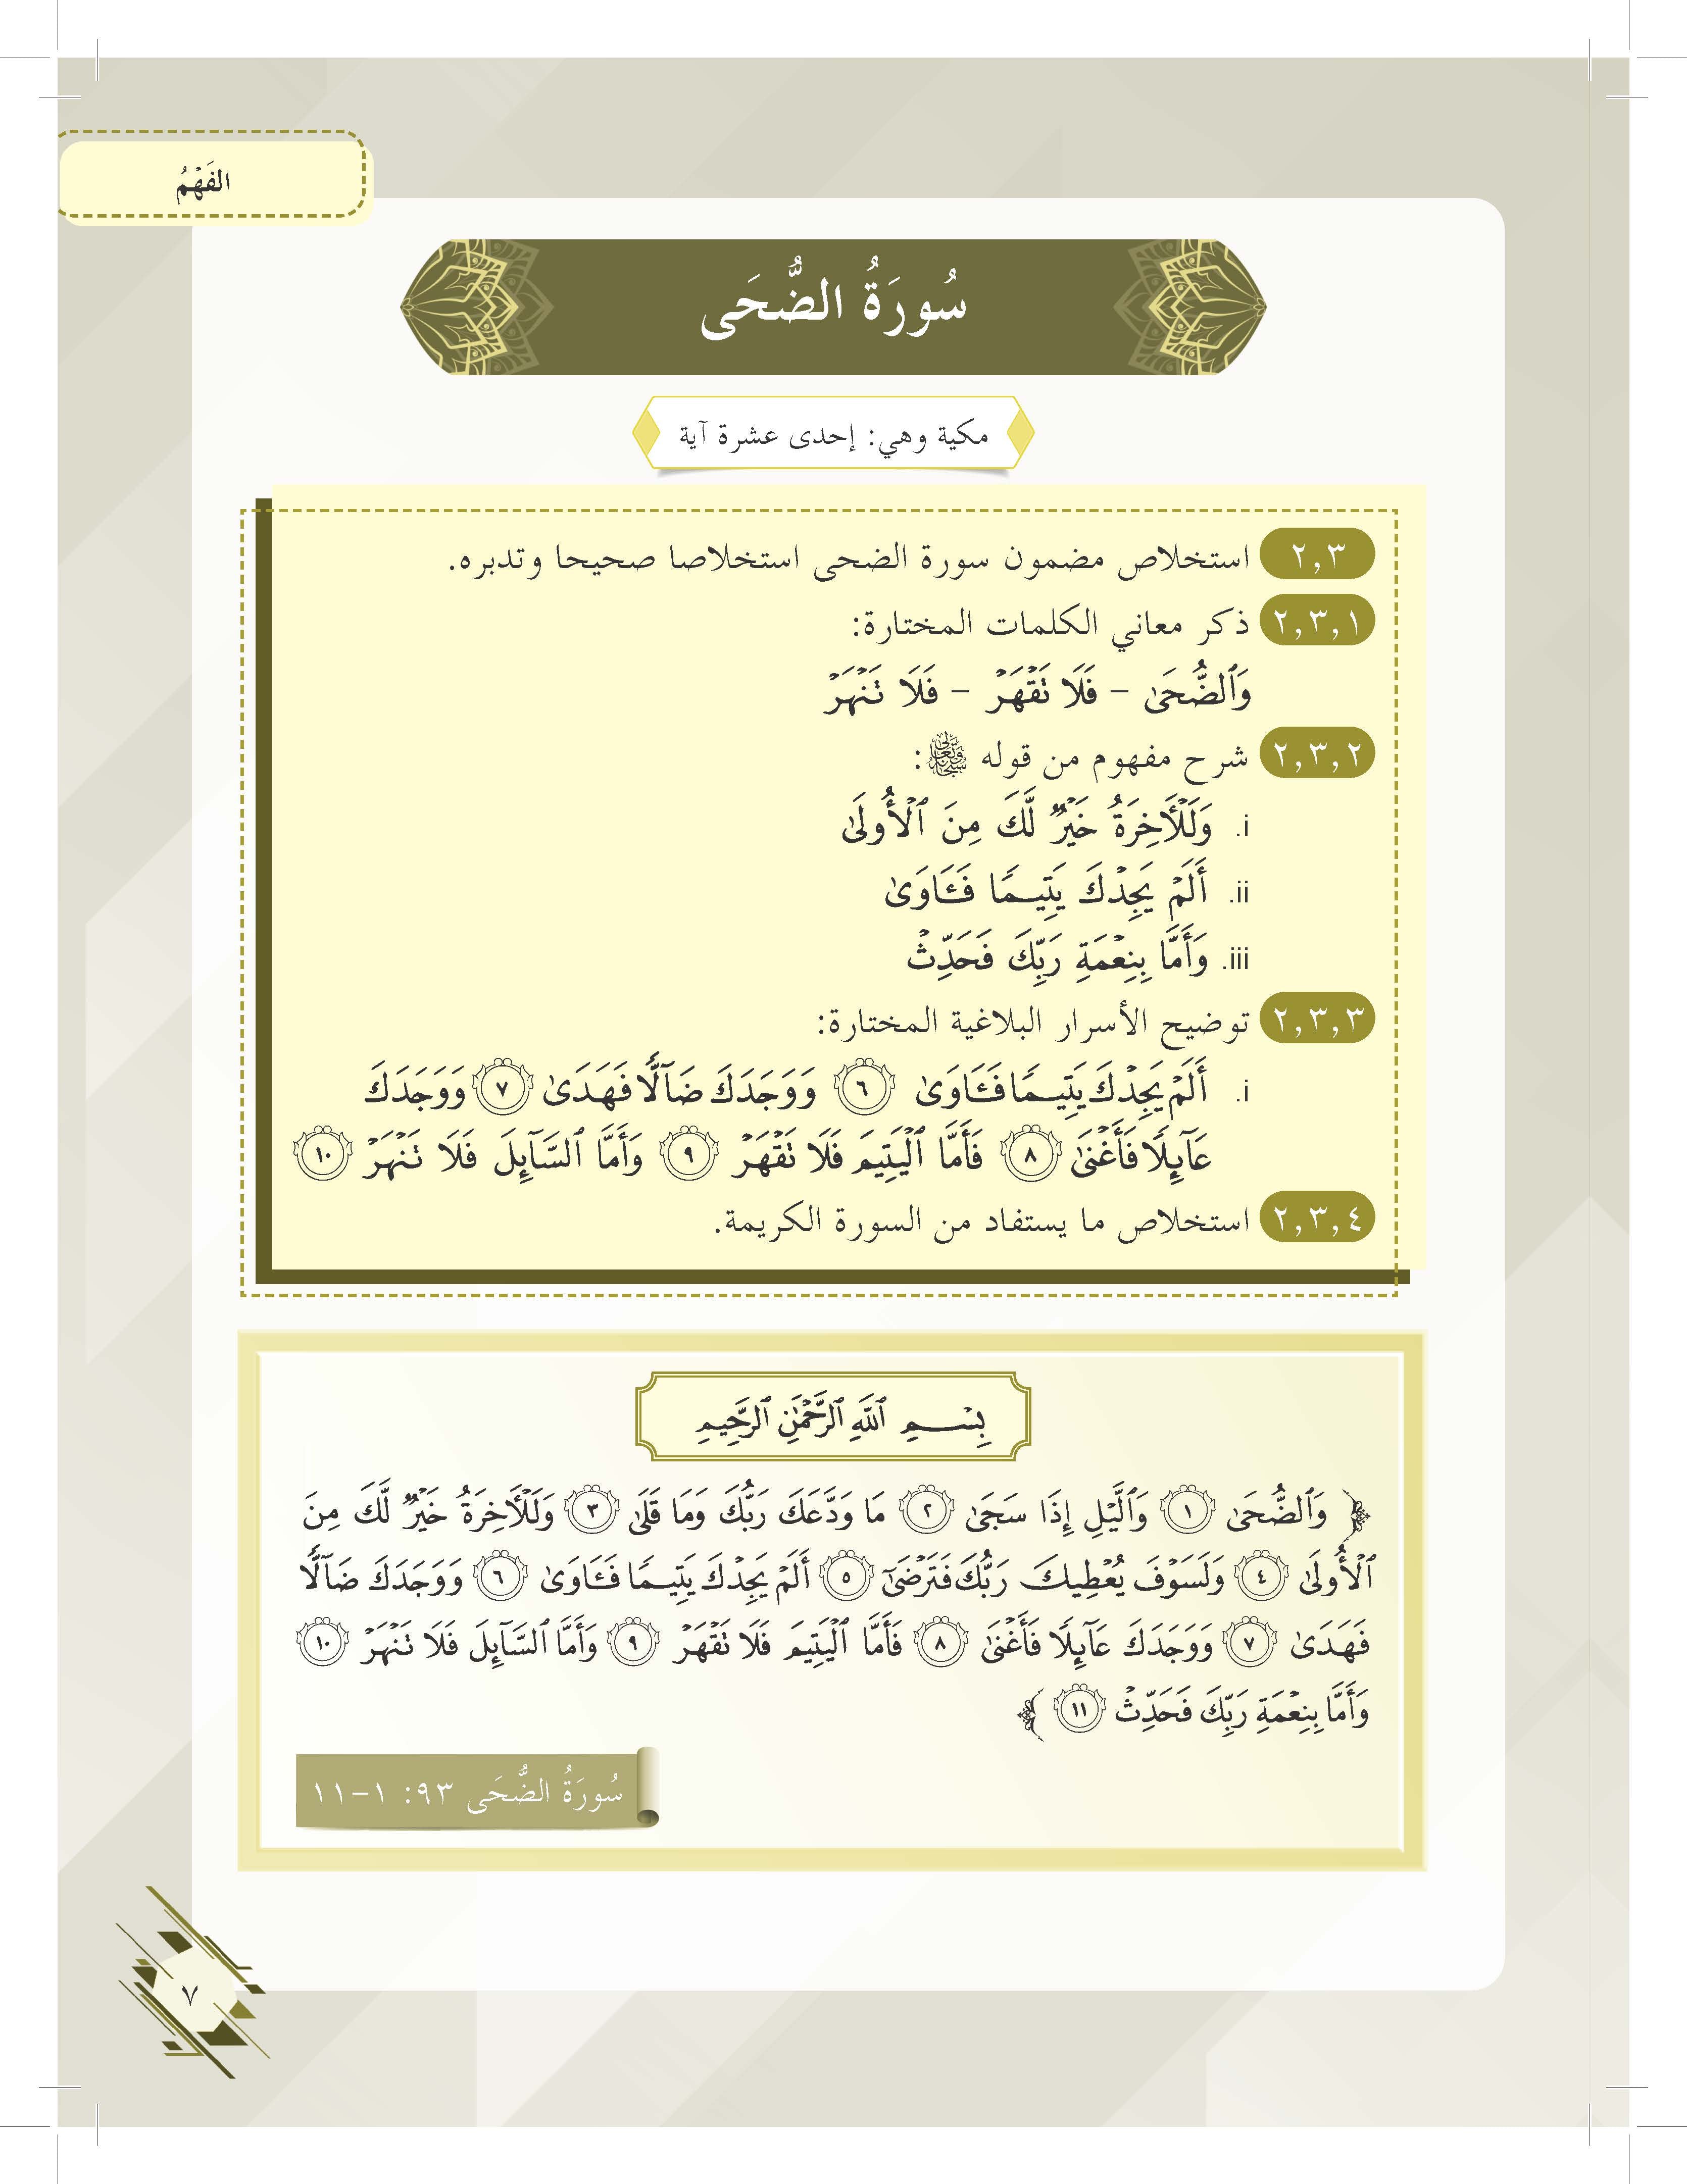 الفَهْمُ
سُورَةُ الضُّحَى
مكية وهي: إحدى عشرة آية
٢,٣ استخلاص مضمون سورة الضحى استخلاصا صحيحا وتدبره.
٢,٣,١ ذكر معاني الكلمات المختارة:
وَٱلضُّحَىٰ – فَلَا تَقۡهَرۡ – فَلَا تَنۡهَرۡ
٢,٣,٢ شرح مفهوم من قوله سبحانه وتعالى:
i. وَلَلۡأٓخِرَةُ خَيۡرٞ لَّكَ مِنَ ٱلۡأُولَىٰ
ii. أَلَمۡ يَجِدۡكَ يَتِيمٗا فَـَٔاوَىٰ
iii. وَأَمَّا بِنِعۡمَةِ رَبِّكَ فَحَدِّثۡ
٢,٣,٣ توضيح الأسرار البلاغية المختارة:
i. أَلَمۡ يَجِدۡكَ يَتِيمٗا فَـَٔاوَىٰ ٦ وَوَجَدَكَ ضَآلّٗا فَهَدَىٰ ٧ وَوَجَدَكَ
عَآئِلٗا فَأَغۡنَىٰ ٨ فَأَمَّا ٱلۡيَتِيمَ فَلَا تَقۡهَرۡ ٩ وَأَمَّا ٱلسَّآئِلَ فَلَا تَنۡهَرۡ ١٠
٢,٣,٤ استخلاص ما يستفاد من السورة الكريمة.
بِسۡمِ ٱللَّهِ ٱلرَّحۡمَٰنِ ٱلرَّحِيمِ
﴿ وَٱلضُّحَىٰ ١ وَٱلَّيۡلِ إِذَا سَجَىٰ ٢ مَا وَدَّعَكَ رَبُّكَ وَمَا قَلَىٰ ٣ وَلَلۡأٓخِرَةُ خَيۡرٞ لَّكَ مِنَ
ٱلۡأُولَىٰ ٤ وَلَسَوۡفَ يُعۡطِيكَ رَبُّكَ فَتَرۡضَىٰٓ ٥ أَلَمۡ يَجِدۡكَ يَتِيمٗا فَـَٔاوَىٰ ٦ وَوَجَدَكَ ضَآلّٗا
فَهَدَىٰ ٧ وَوَجَدَكَ عَآئِلٗا فَأَغۡنَىٰ ٨ فَأَمَّا ٱلۡيَتِيمَ فَلَا تَقۡهَرۡ ٩ وَأَمَّا ٱلسَّآئِلَ فَلَا تَنۡهَرۡ ١٠
وَأَمَّا بِنِعۡمَةِ رَبِّكَ فَحَدِّثۡ ١١ ﴾
سُورَةُ الضُّحَى ٩٣: ١-١١
٧